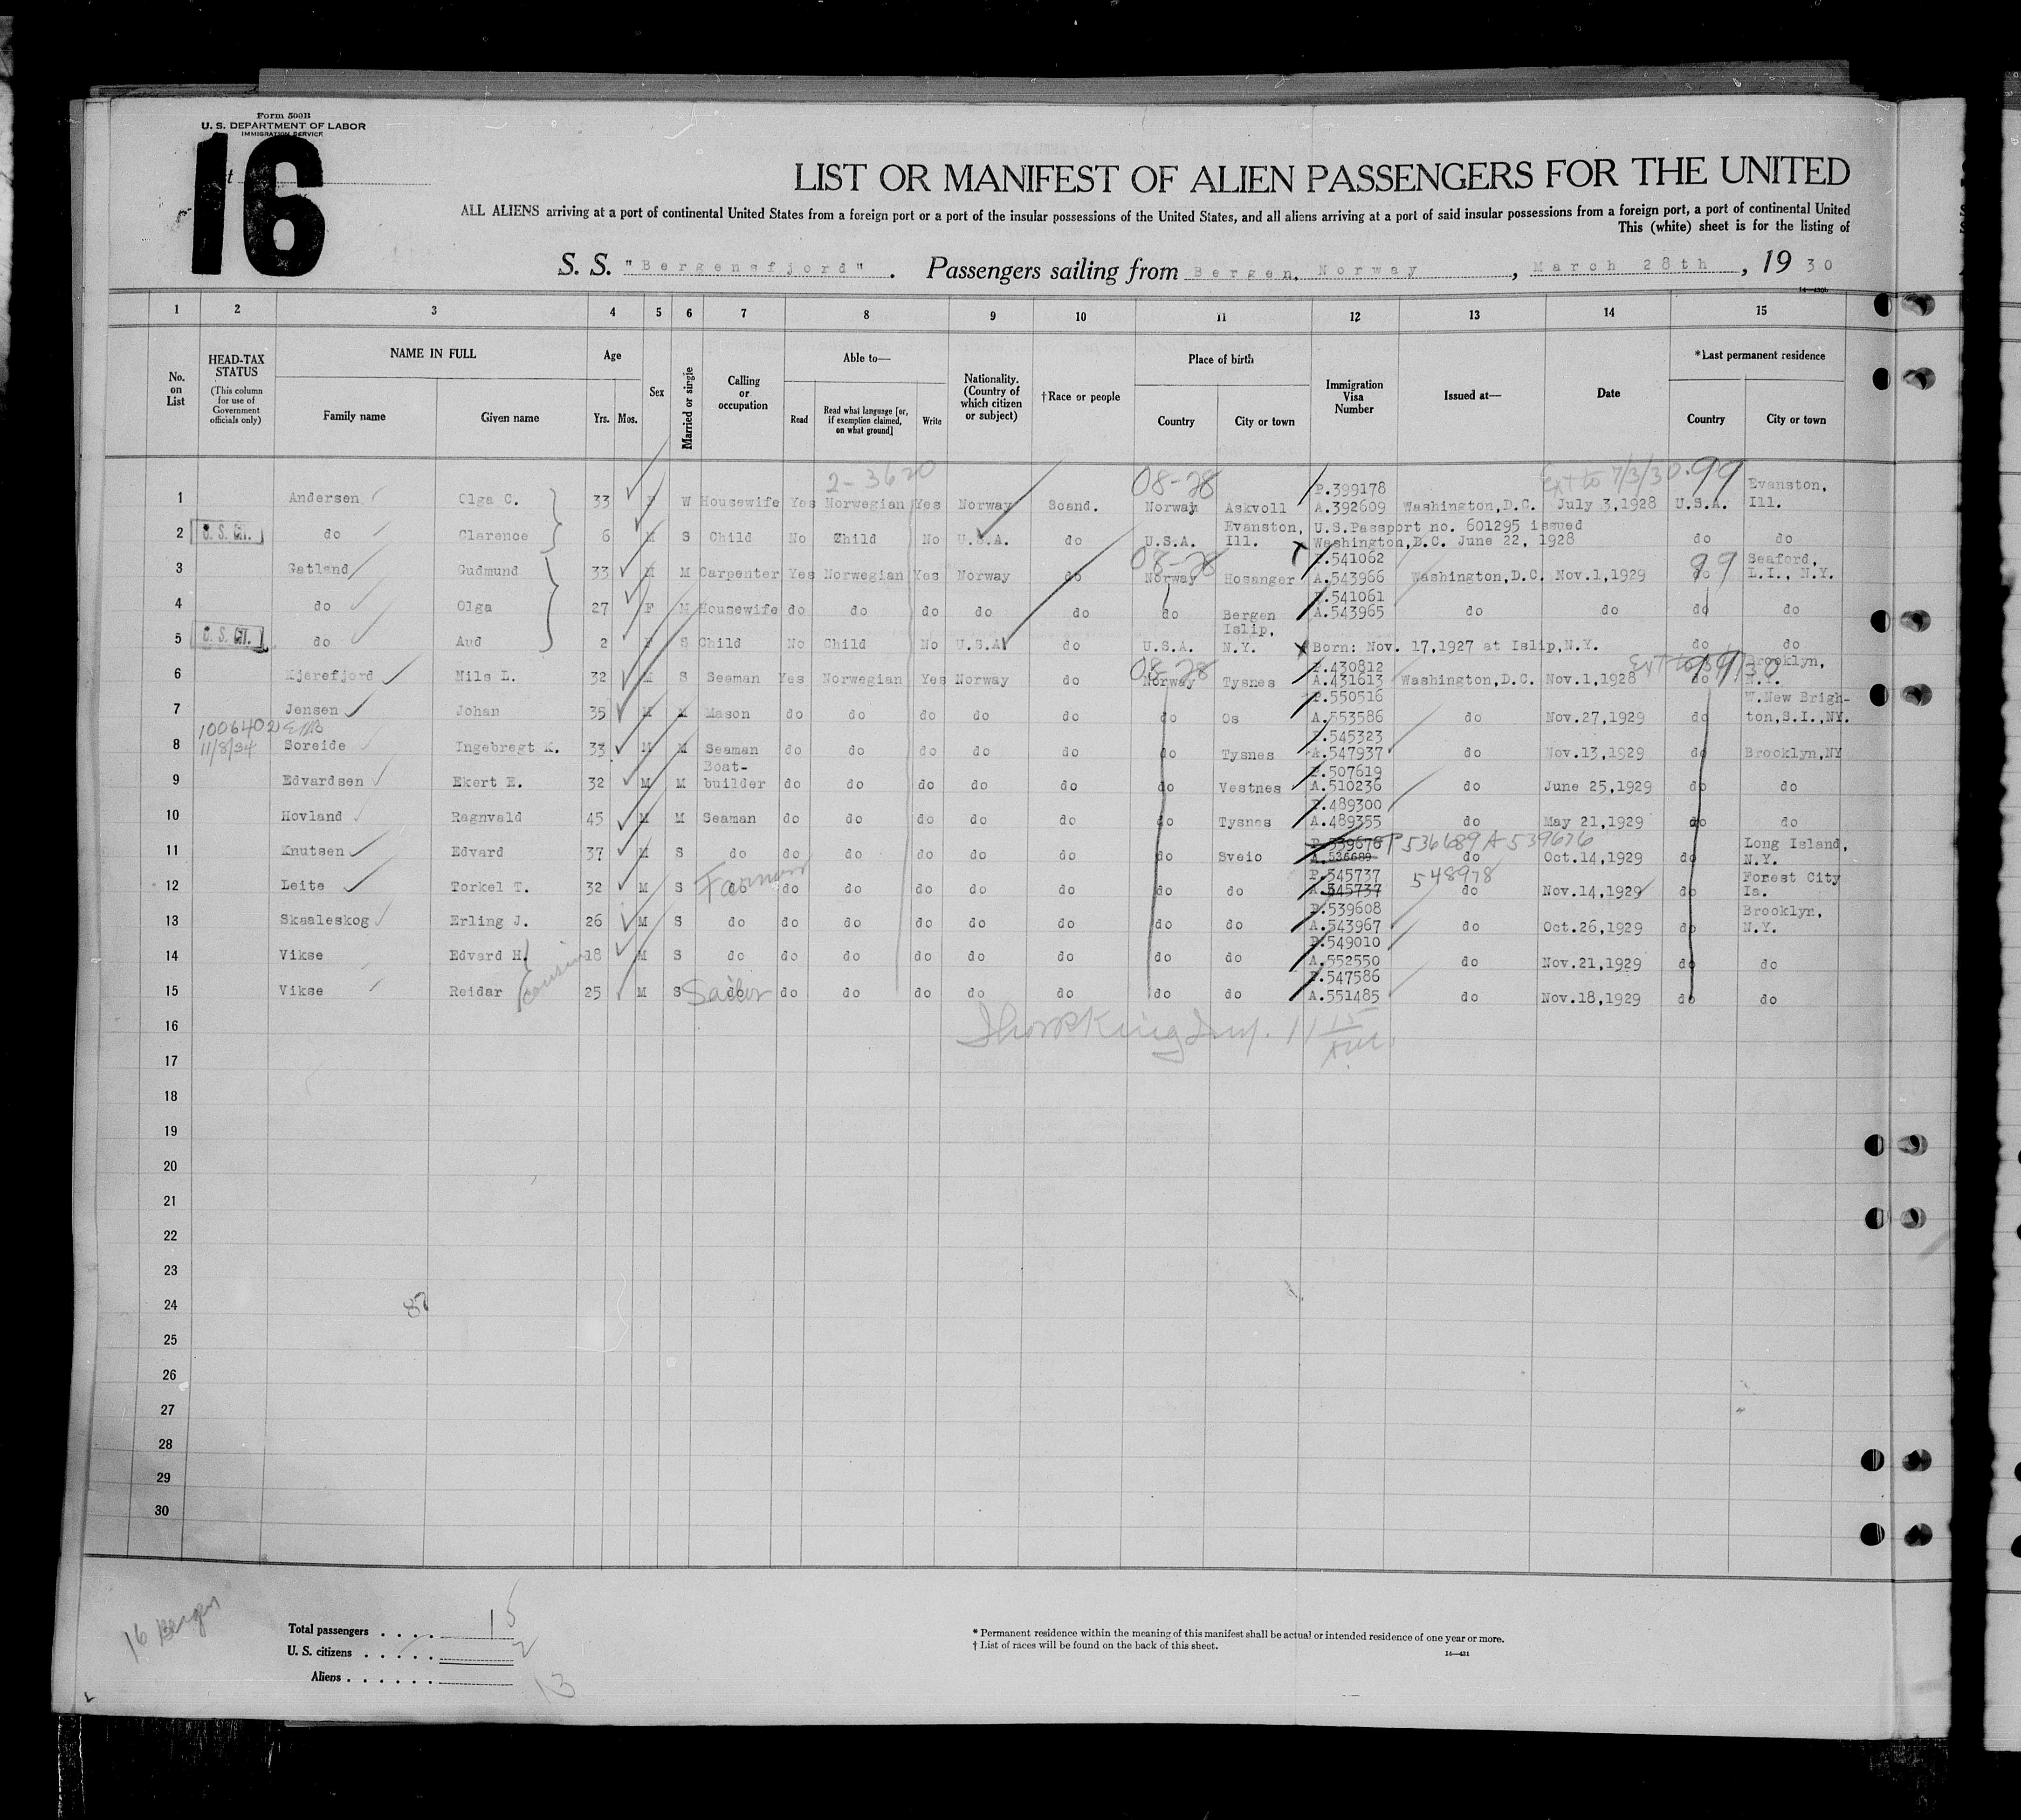 Form 500B
U. S. DEPARTMENT OF LABOR
IMMIGRATION SERVICE
16
LIST OR MANIFEST OF ALIEN PASSENGERS FOR THE UNITED
ALL ALIENS arriving at a port of continental United States from a foreign port or a port of the insular possessions of the United States, and all aliens arriving at a port of said insular possessions from a foreign port, a port of continental United
This (white) sheet is for the listing of
S. S. "Bergensfjord". Passengers sailing from Bergen, Norway, March 28th, 1930
1 2 3 4 5 6 7 8 9 10 11 12 13 14 15
No. on List
HEAD-TAX STATUS (This column for use of Government officials only)
NAME IN FULL Family name Given name
Age Yrs. Mos.
Sex
Married or single
Calling or occupation
Able to— Read Read what language [or, if exemption claimed, on what ground] Write
Nationality. (Country of which citizen or subject)
†Race or people
Place of birth Country City or town
Immigration Visa Number
Issued at—
Date
*Last permanent residence Country City or town
2-3620 08-28 Ext to 7/3/30. 99
1 Andersen Olga C. 33 F W Housewife Yes Norwegian Yes Norway Scand. Norway Askvoll P.399178 A.392609 Washington,D.C. July 3,1928 U.S.A. Evanston, Ill.
2 U. S. CIT. do Clarence 6 M S Child No Child No U.S.A. do U.S.A. Evanston, Ill. U.S.Passport no. 601295 issued Washington,D.C. June 22, 1928 do do
08-28 99
3 Gatland Gudmund 33 M M Carpenter Yes Norwegian Yes Norway do Norway Hosanger P.541062 A.543966 Washington,D.C. Nov.1,1929 do Seaford, L.I., N.Y.
4 do Olga 27 F M Housewife do do do do do do Bergen P.541061 A.543965 do do do do
5 U. S. CIT. do Aud 2 F S Child No Child No U.S.A. do U.S.A. Islip, N.Y. Born: Nov. 17,1927 at Islip,N.Y. do do
08-28
6 Kjerefjord Nils L. 32 M S Seaman Yes Norwegian Yes Norway do Norway Tysnes P.430812 A.431613 Washington,D.C. Nov.1,1928 do Brooklyn, N.Y.
7 Jensen Johan 35 M M Mason do do do do do do Os P.550516 A.553586 do Nov.27,1929 do W.New Brighton,S.I.,NY.
1006402
11/8/34
8 Soreide Ingebregt K. 33 M M Seaman do do do do do do Tysnes P.545323 A.547937 do Nov.13,1929 do Brooklyn,NY
9 Edvardsen Ekert E. 32 M M Boat-builder do do do do do do Vestnes P.507619 A.510236 do June 25,1929 do do
10 Hovland Ragnvald 45 M M Seaman do do do do do do Tysnes P.489300 A.489355 do May 21,1929 do do
11 Knutsen Edvard 37 M S do do do do do do do Sveio P.539676 A.536689 P 536689 A 539676 do Oct.14,1929 do Long Island, N.Y.
12 Leite Torkel T. 32 M S do Farmer do do do do do do do P.545737 A.545737 548978 do Nov.14,1929 do Forest City Ia.
13 Skaaleskog Erling J. 26 M S do do do do do do do do P.539608 A.543967 do Oct.26,1929 do Brooklyn, N.Y.
14 Vikse Edvard H. 18 M S do do do do do do do do P.549010 A.552550 do Nov.21,1929 do do
cousins
15 Vikse Reidar 25 M S do Sailor do do do do do do do P.547586 A.551485 do Nov.18,1929 do do
16
17
18
19
20
21
22
23
24
87
25
26
27
28
29
30
16 Bergen
Total passengers 15
U. S. citizens 2
Aliens 13
* Permanent residence within the meaning of this manifest shall be actual or intended residence of one year or more.
† List of races will be found on the back of this sheet.